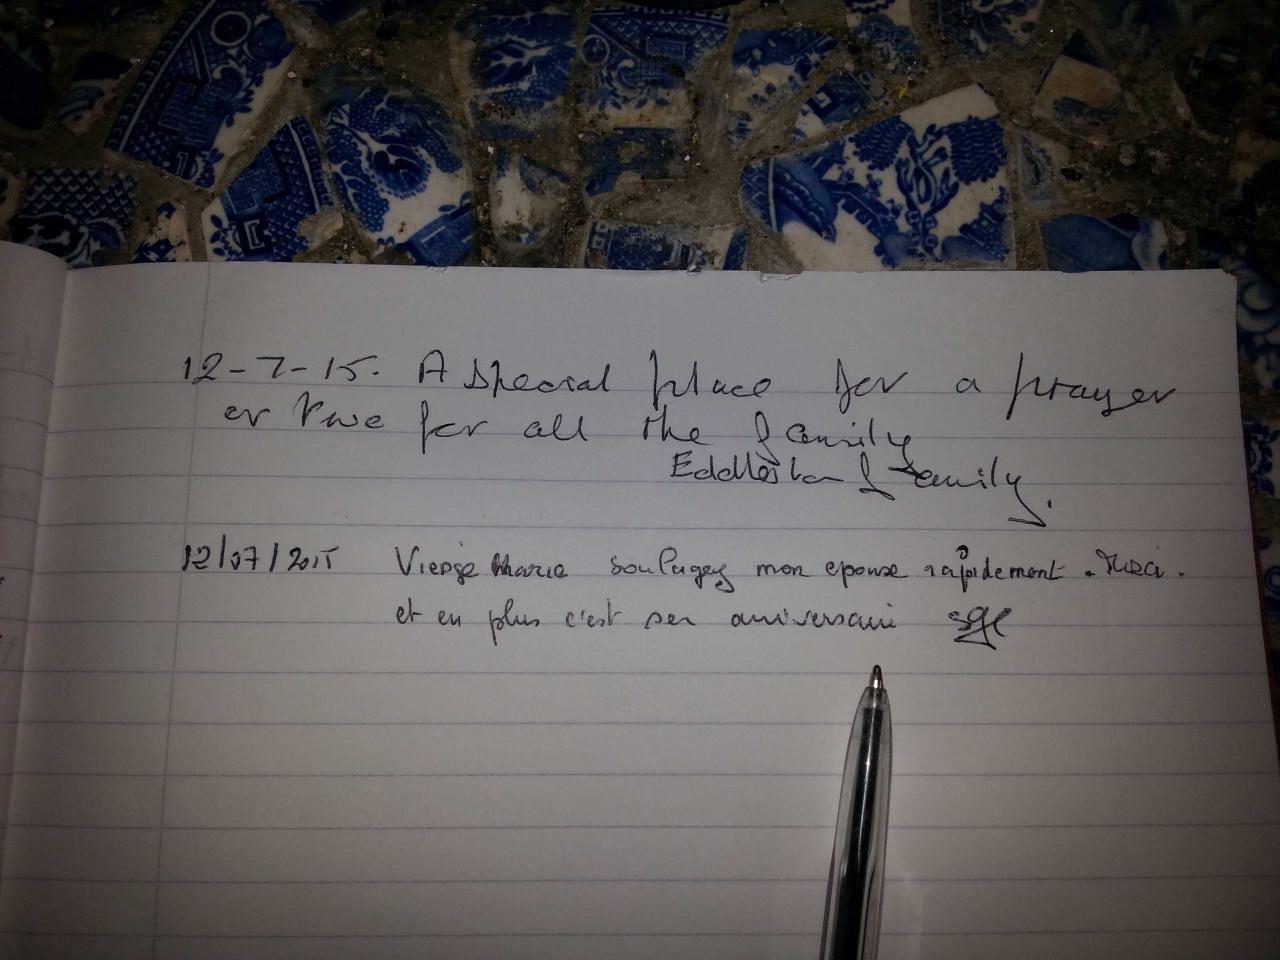 12-7-15. A special place for a prayer
or two for all the family
Eddleston family.
12/07/2015 Vierge Marie soulagez mon epouse rapidement. Merci.
et en plus c'est son anniversaire